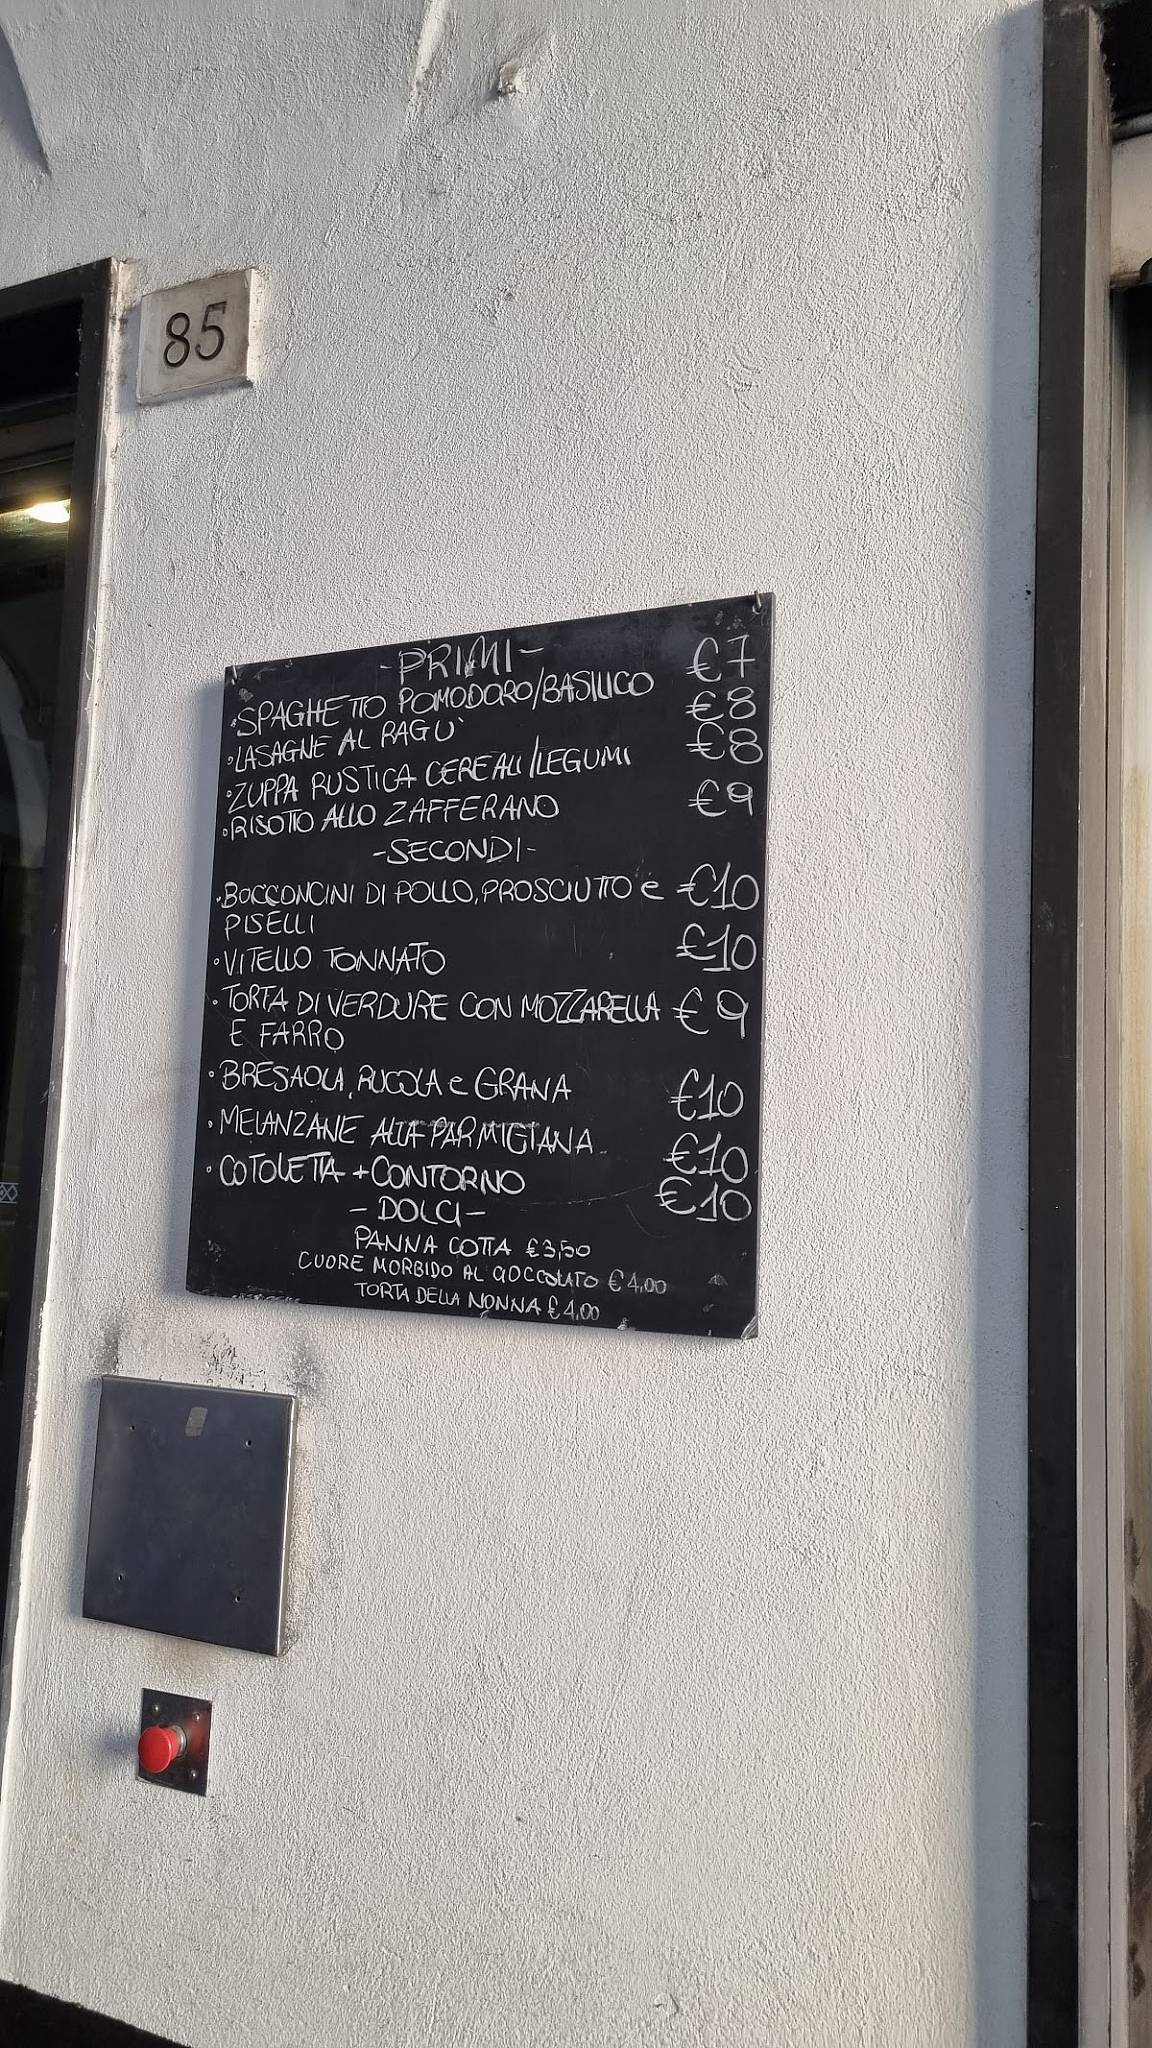 85
-PRIMI-
•SPAGHETTO POMODORO/BASILICO €7
•LASAGNE AL RAGU' €8
•ZUPPA RUSTICA CEREALI/LEGUMI €8
•RISOTTO ALLO ZAFFERANO €9
-SECONDI-
•BOCCONCINI DI POLLO, PROSCIUTTO e €10
PISELLI
•VITELLO TONNATO €10
•TORTA DI VERDURE CON MOZZARELLA €9
E FARRO
•BRESAOLA, RUCOLA e GRANA €10
•MELANZANE ALLA PARMIGIANA €10
•COTOLETTA + CONTORNO €10
-DOLCI-
PANNA COTTA €3,50
CUORE MORBIDO AL CIOCCOLATO €4,00
TORTA DELLA NONNA €4,00